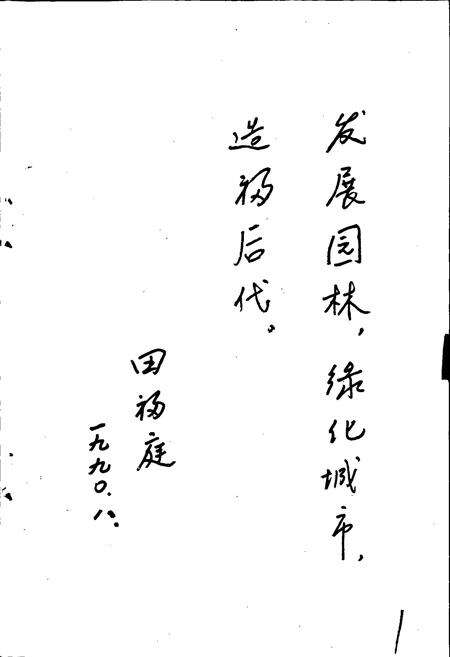 发展园林，绿化城市，
造福后代。
田福庭
一九九〇.八.